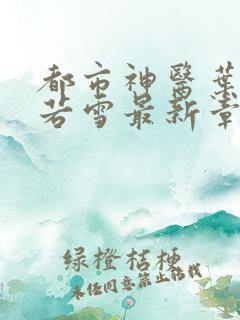 都市神醫葉
若雪最新章
绿橙桔梗
未经同意禁止转载